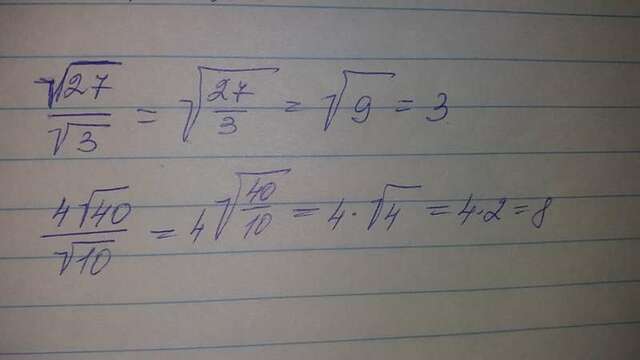 √27/√3 = √(27/3) = √9 = 3
4√40/√10 = 4√(40/10) = 4·√4 = 4·2 = 8